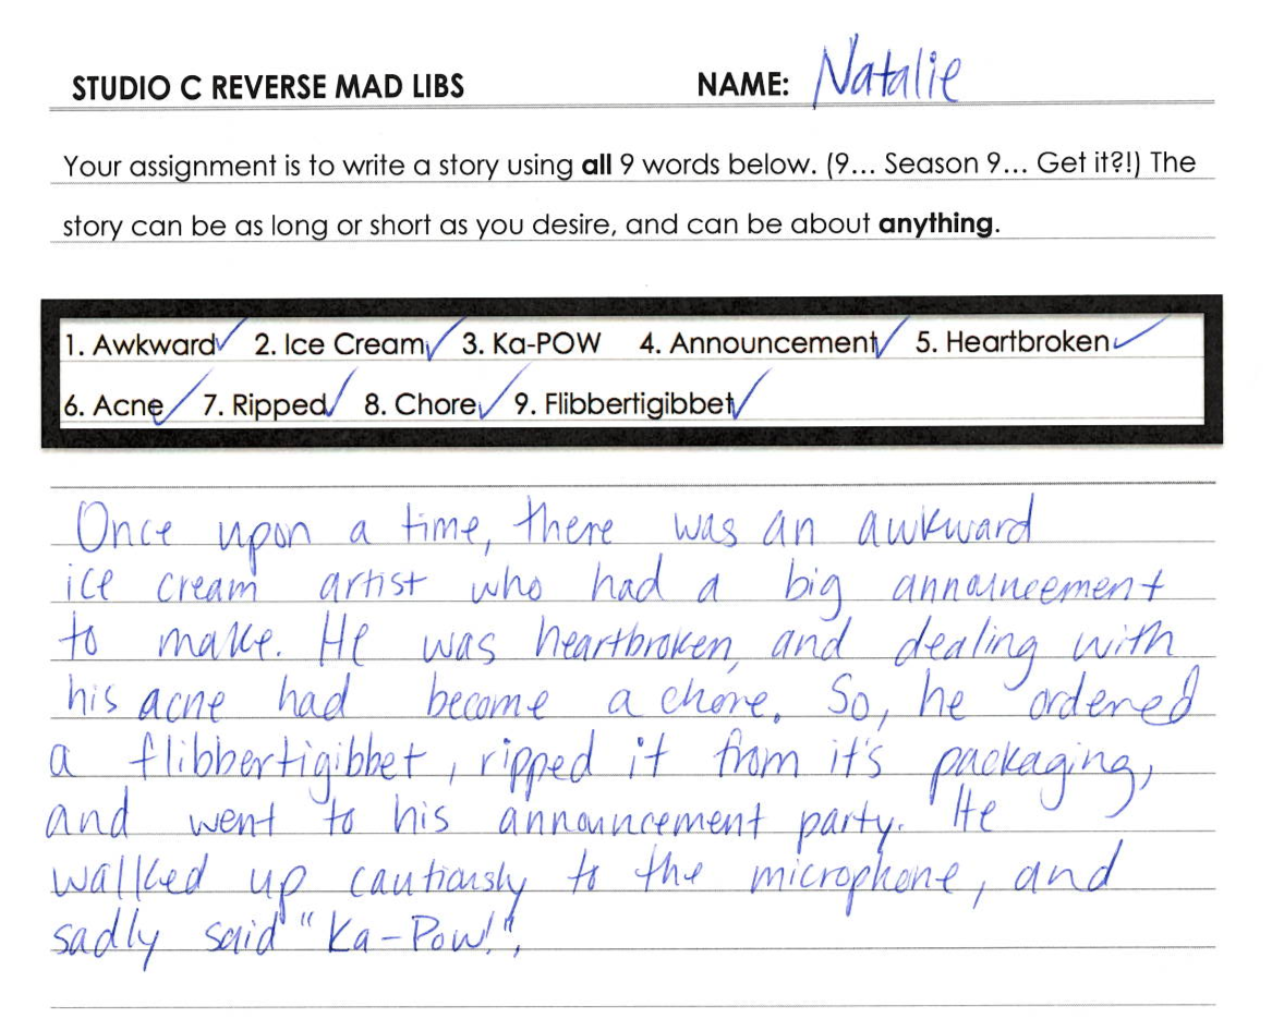 STUDIO C REVERSE MAD LIBS NAME: Natalie
Your assignment is to write a story using all 9 words below. (9... Season 9... Get it?!) The
story can be as long or short as you desire, and can be about anything.
1. Awkward✓ 2. Ice Cream✓ 3. Ka-POW 4. Announcement✓ 5. Heartbroken✓
6. Acne✓ 7. Ripped✓ 8. Chore✓ 9. Flibbertigibbet✓
Once upon a time, there was an awkward
ice cream artist who had a big announcement
to make. He was heartbroken, and dealing with
his acne had become a chore. So, he ordered
a flibbertigibbet, ripped it from it's packaging,
and went to his announcement party. He
walked up cautiously to the microphone, and
sadly said "Ka-Pow!",